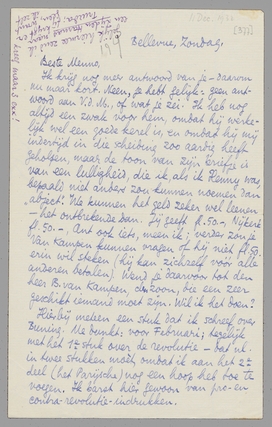 Bellevue, Zondag.
Beste Menno,
Ik krijg nog meer antwoord van je - Daarom
nu maar kort. Neen, je hebt gelijk: geen ant-
woord aan V.D.M., of wat je zei. Ik heb nog
altijd een zwak voor hem, omdat hij werke-
lijk wel een goeie kerel is, en omdat hij mij
indertijd in die scheiding zoo aardig heeft
geholpen, maar de toon van zijn briefje is
van een lulligheid, die ik, als ik Henny was,
bepaald niet anders zou kunnen noemen dan
"abject". We kunnen het geld zeker wel leenen
- het ontbrekende dan. Jij geeft fl. 50.-, Nijkerk
fl. 50.-, Ant ook iets, meer ik; verder zou je
Van Kampen kunnen vragen of hij niet fl. 50
erin wil steken (hij kan zichzelf vóór alle
anderen betalen). Wend je daarvoor tot den
heer B. van Kampen, zoon, die een zeer
geschikt iemand moet zijn. Wil je het doen?
Hierbij meteen een stuk dat ik schreef over
Buning. Me dunkt: voor Februari; tegelijk
met het 1e stuk over de revolutie - dat nl.
in twee stukken moet, omdat ik aan het 2e
deel (het Parijsche) nog een hoop heb toe te
voegen. Ik barst hier gewoon van pro- en
contra-revolutie-indrukken.